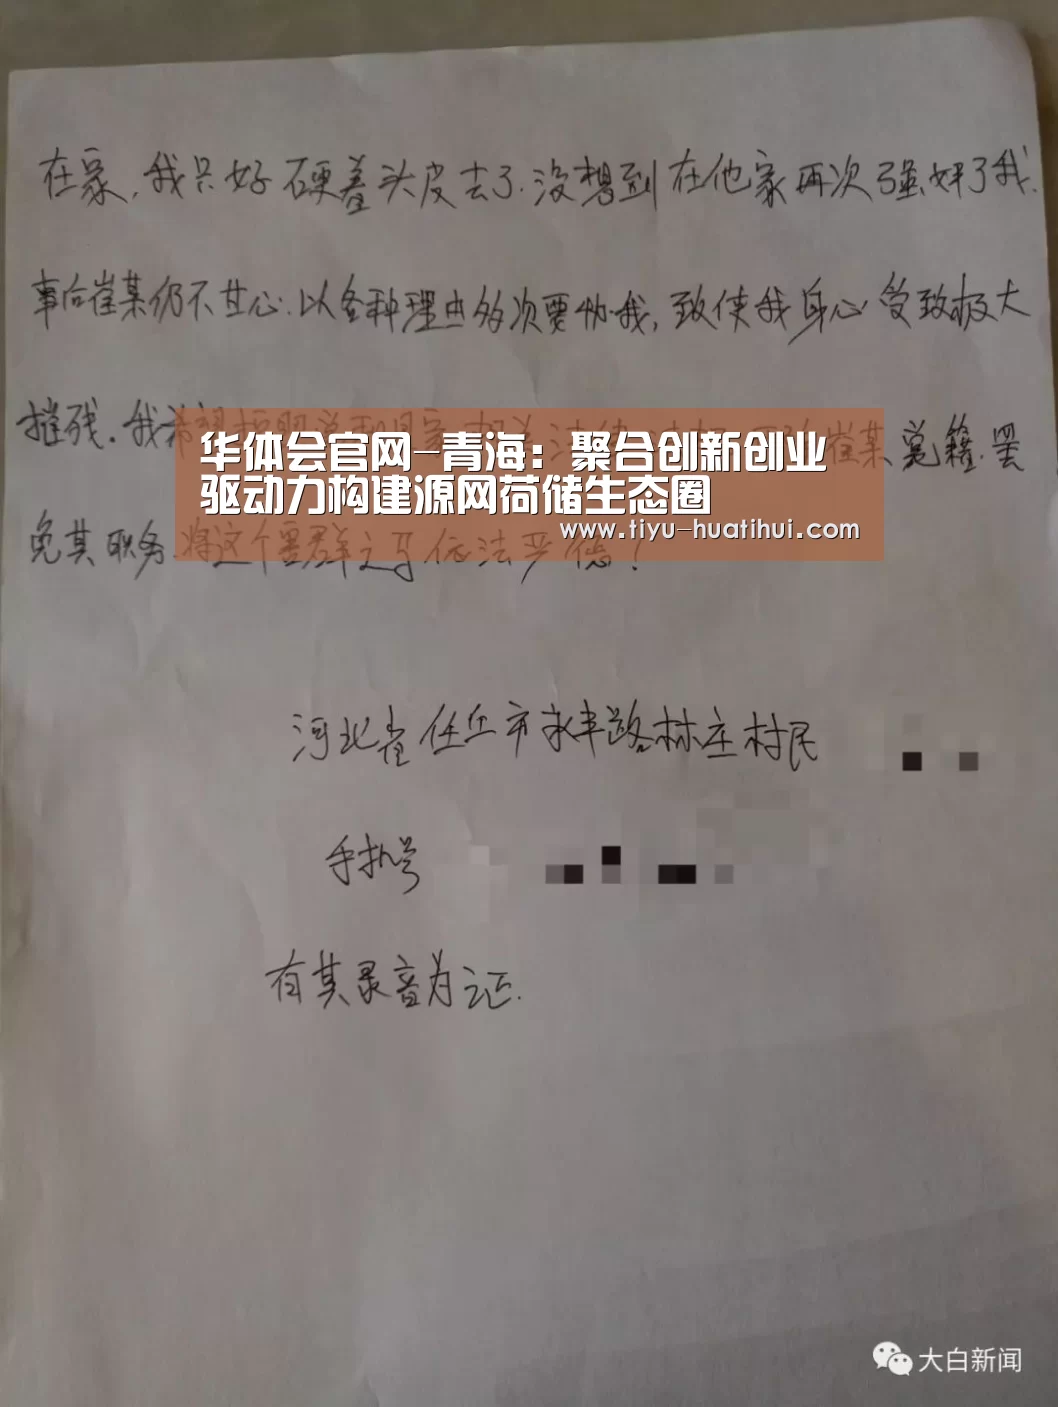 在家，我只好硬着头皮去了.没想到在他家再次强奸了我.
事后崔某仍不甘心.以各种理由多次要协我，致使我身心受致极大
摧残.我希望 崔某党籍.罢
华体会官网-青海：聚合创新创业
驱动力构建源网荷储生态圈
www.tiyu-huatihui.com
免其职务.将这个害群之马依法严惩！
河北省任丘市永丰路林庄村民
手机号
有其录音为证.
大白新闻